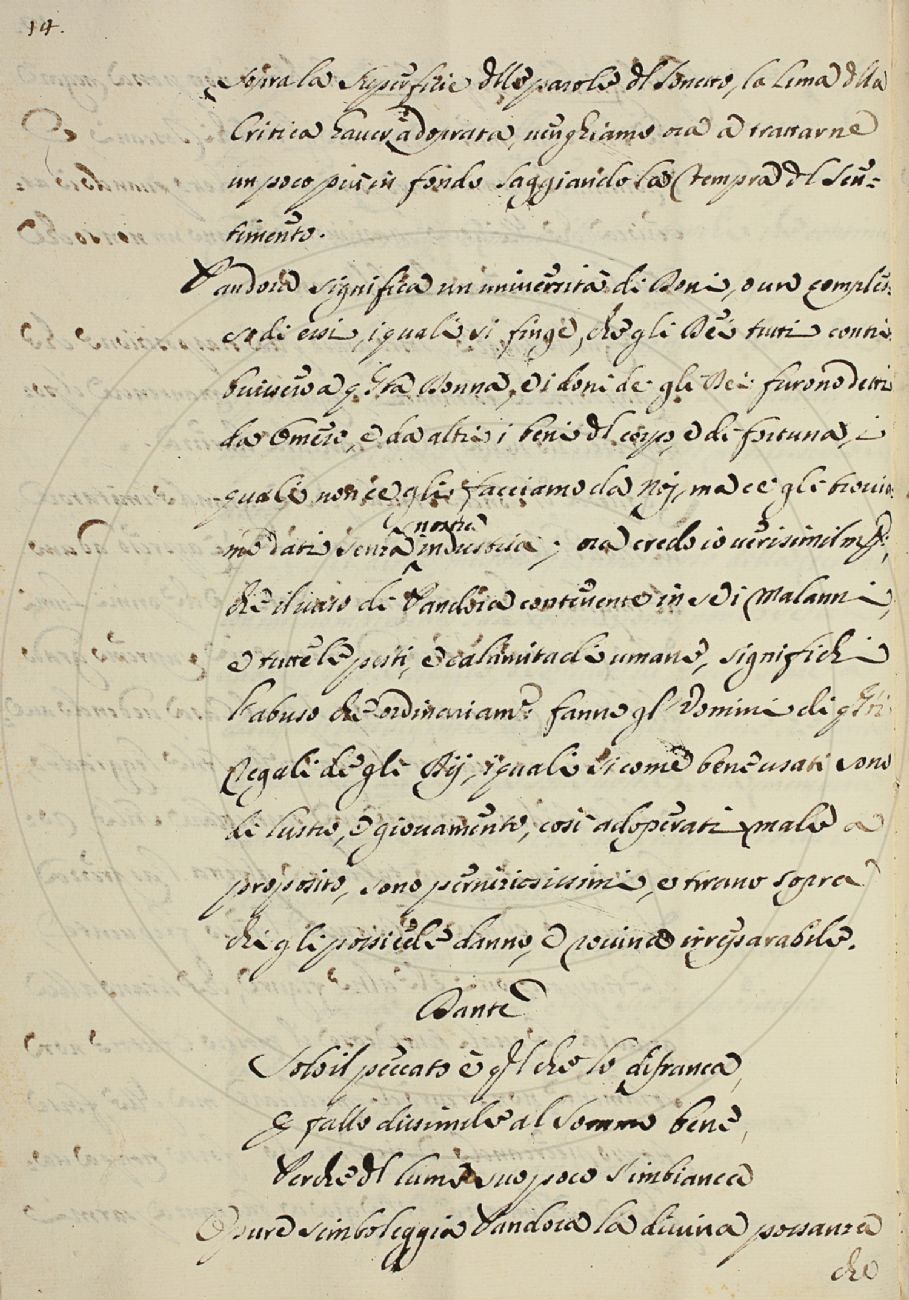 14.
sopra la superficie dlle parole dl Sonetto, la Lima dlla
Critica haver adoprata, venghiamo ora a trattarne
un poco più in fondo saggiando la tempra dl Sen=
timento.
Pandora significa un'università di Doni, o ure comples:
so di essi, i quali si finge, che gli Dei tutti contri
buissero a qsta Donna, e i doni de gli Dei furono detti
da Omero, e da altri i beni dl corpo, e di fortuna, i
quali non ce gli facciamo da Noj, ma ce gli trovia=
mo dati senza nostra industria; ora credo io verisimilmte,
che il vaso di Pandora contenente in se i malanni,
e tutte le pesti, e calamitadi umane, significhi
l'abuso che ordinariamte fanno gl'Uomini di qsti
Regali de gli Dij, i quali si come bene usati sono
di lustro, e giovamento, così adoperati male a
proposito, sono perniziosissimi, e tirano sopra
chi gli possiede danno, e rovina irreparabile.
Dante
Solo il peccato è ql che lo disfranca,
E fallo dissimile al Sommo bene,
Perche dl lume suo poco s'imbianca
O pure simboleggia Pandora la divina possanza
che